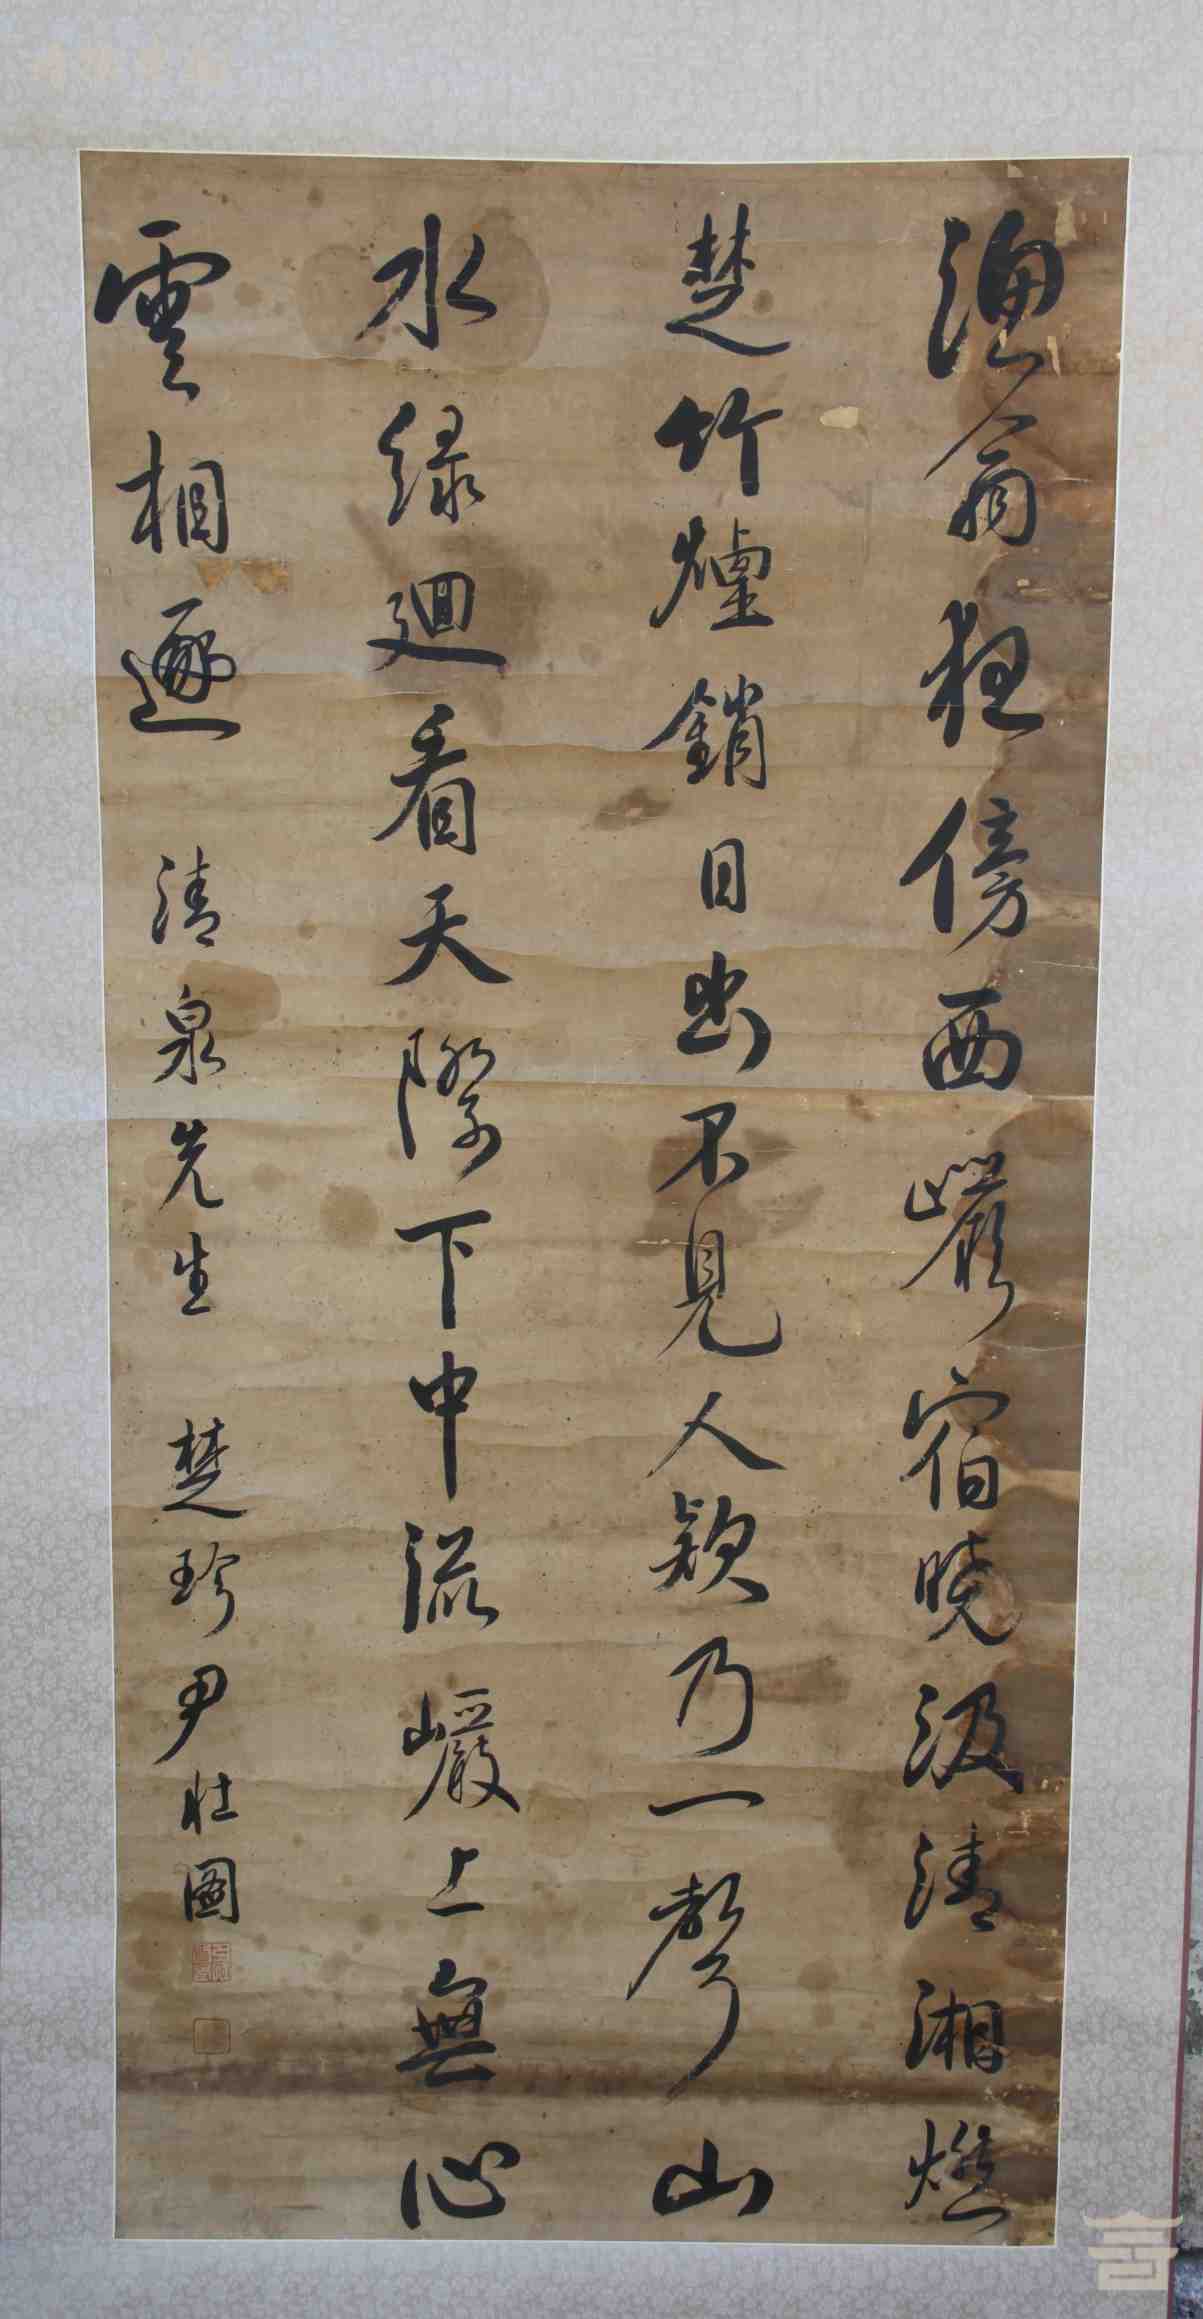 漁翁夜傍西巖宿曉汲清湘燃
楚竹煙銷日出不見人欸乃一聲山
水綠廻看天際下中流巖上無心
雲相逐 清泉先生 楚珍尹壯圖